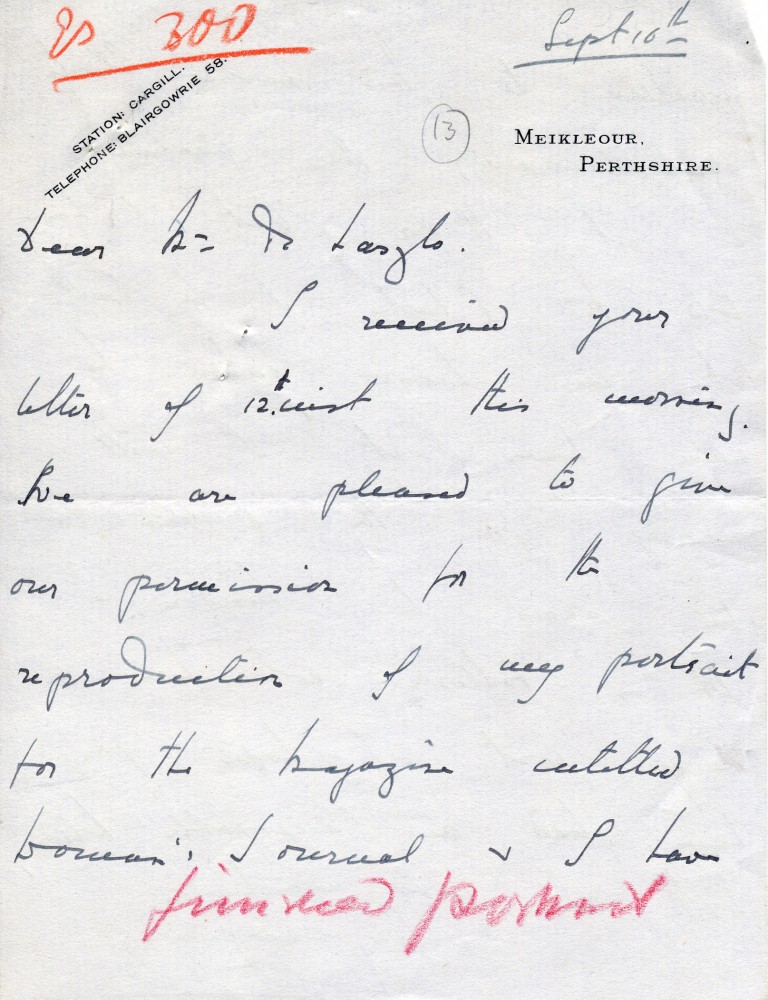 300
Sept 16th
STATION: CARGILL.
TELEPHONE: BLAIRGOWRIE 58.
13
MEIKLEOUR,
PERTHSHIRE.
Dear Mr De Laszlo.
I received your
letter of 12th inst this morning.
We are pleased to give
our permission for the
reproduction of my portrait
for the Magazine entitled
Woman's Journal & I have
finished portrait